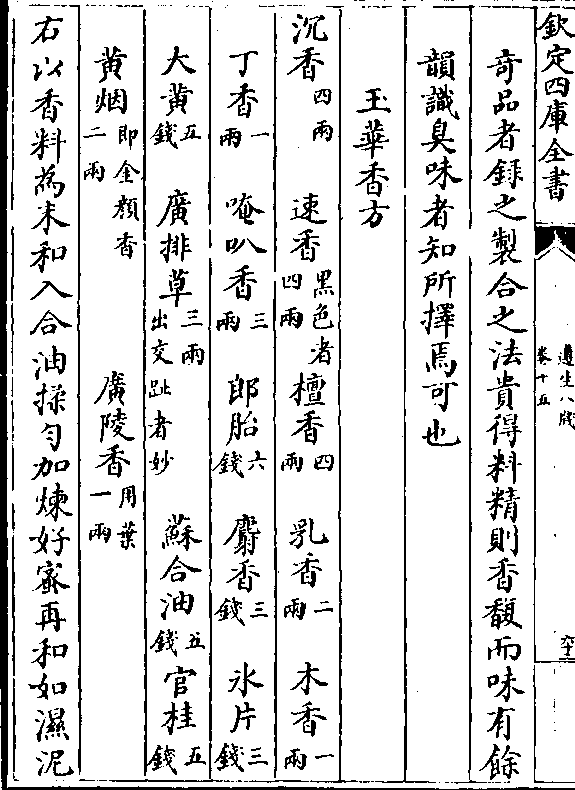 欽定四庫全書
遵生八牋
卷十五
六十三
奇品者録之製合之法貴得料精則香馥而味有餘
韻識臭味者知所擇焉可也
玉華香方
沉香四兩 速香黑色者四兩 檀香四兩 乳香二兩 木香一兩
丁香一兩 唵叭香三兩 郎胎六錢 麝香三錢 氷片三錢
大黄五錢 廣排草三兩出交趾者妙 蘇合油五錢 官桂五錢
黄烟即金顔香二兩 廣陵香用葉一兩
右以香料為末和入合油揉匀加煉好蜜再和如濕泥